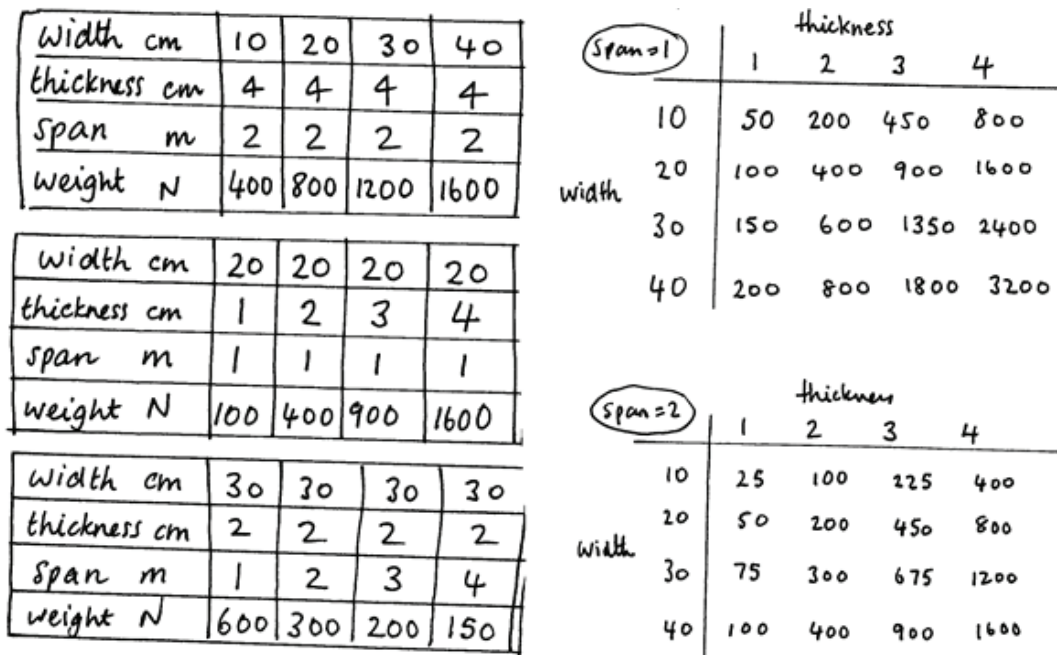 width cm 10 20 30 40
thickness cm 4 4 4 4
span m 2 2 2 2
weight N 400 800 1200 1600
width cm 20 20 20 20
thickness cm 1 2 3 4
span m 1 1 1 1
weight N 100 400 900 1600
width cm 30 30 30 30
thickness cm 2 2 2 2
span m 1 2 3 4
weight N 600 300 200 150
span=1
thickness
1 2 3 4
10 50 200 450 800
20 100 400 900 1600
width
30 150 600 1350 2400
40 200 800 1800 3200
span=2
thickness
1 2 3 4
10 25 100 225 400
20 50 200 450 800
width
30 75 300 675 1200
40 100 400 900 1600